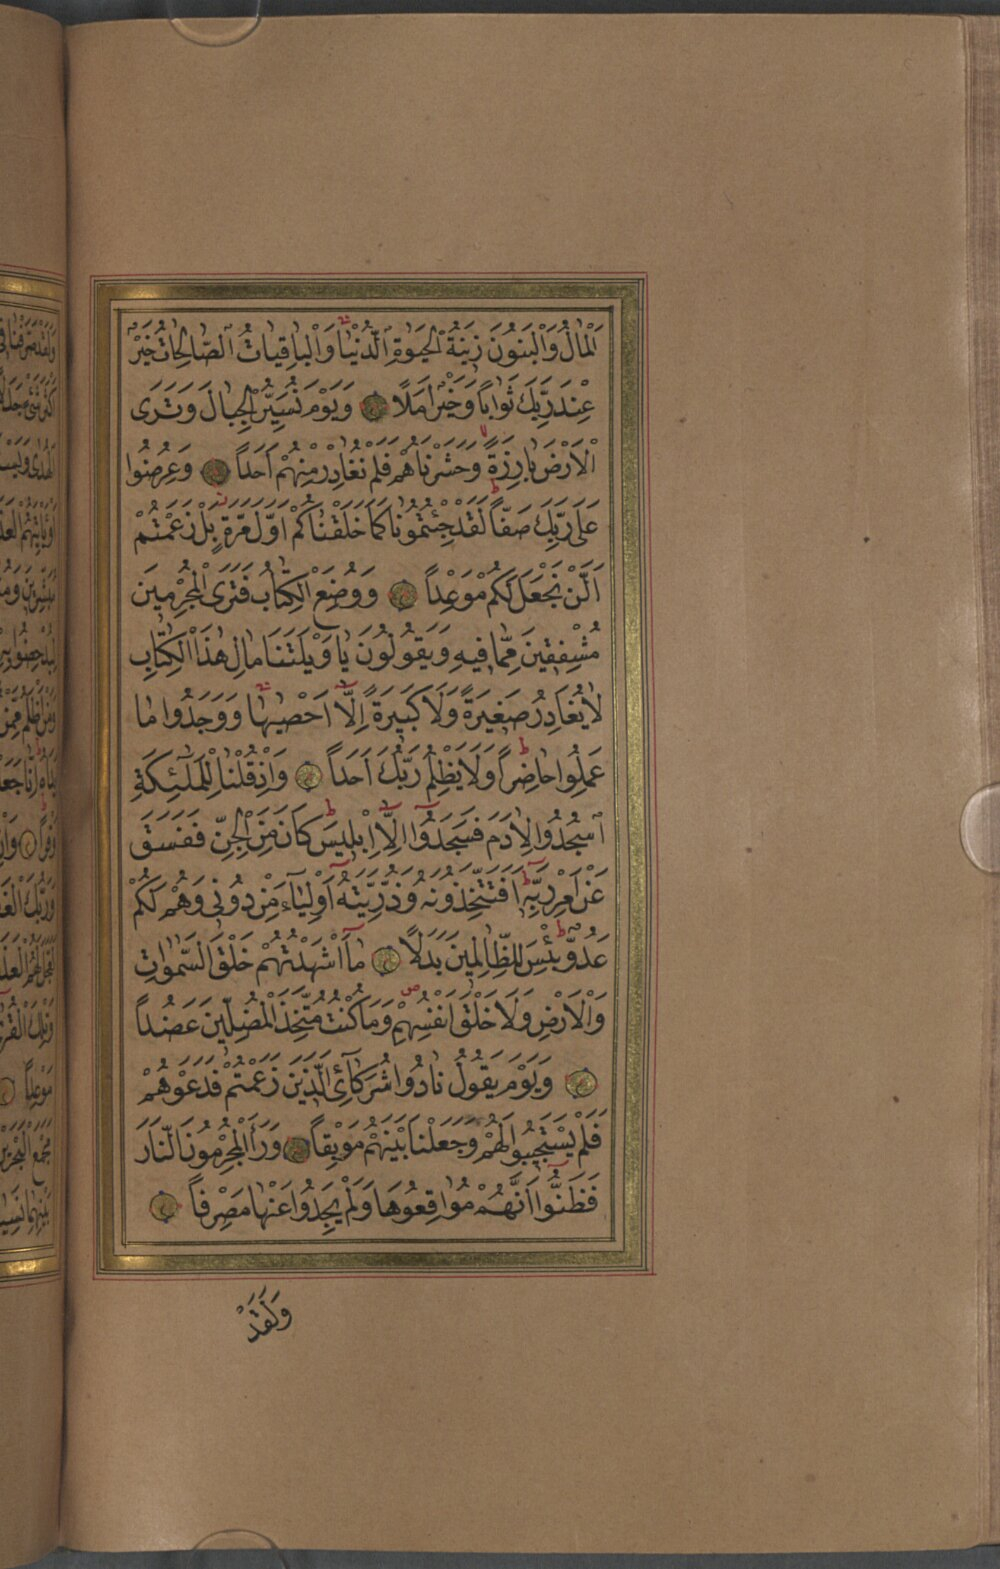 اَلْمَالُ وَالْبَنُونَ زِينَةُ الْحَيٰوةِ الدُّنْيَا وَالْبَاقِيَاتُ الصَّالِحَاتُ خَيْرٌ
عِنْدَ رَبِّكَ ثَوَاباً وَخَيْرٌ اَمَلًا وَيَوْمَ نُسَيِّرُ الْجِبَالَ وَتَرَى
الْاَرْضَ بَارِزَةً وَحَشَرْنَاهُمْ فَلَمْ نُغَادِرْ مِنْهُمْ اَحَداً وَعُرِضُوا
عَلٰى رَبِّكَ صَفّاً لَقَدْ جِئْتُمُونَا كَمَا خَلَقْنَاكُمْ اَوَّلَ مَرَّةٍ بَلْ زَعَمْتُمْ
اَلَّنْ نَجْعَلَ لَكُمْ مَوْعِداً وَوُضِعَ الْكِتَابُ فَتَرَى الْمُجْرِمِينَ
مُشْفِقِينَ مِمَّا فِيهِ وَيَقُولُونَ يَا وَيْلَتَنَا مَالِ هٰذَا الْكِتَابِ
لَا يُغَادِرُ صَغِيرَةً وَلَا كَبِيرَةً اِلَّا اَحْصٰيهَا وَوَجَدُوا مَا
عَمِلُوا حَاضِراً وَلَا يَظْلِمُ رَبُّكَ اَحَداً وَاِذْ قُلْنَا لِلْمَلٰئِكَةِ
اسْجُدُوا لِاٰدَمَ فَسَجَدُوا اِلَّا اِبْلِيسَ كَانَ مِنَ الْجِنِّ فَفَسَقَ
عَنْ اَمْرِ رَبِّهِ اَفَتَتَّخِذُونَهُ وَذُرِّيَّتَهُ اَوْلِيَاءَ مِنْ دُونِي وَهُمْ لَكُمْ
عَدُوٌّ بِئْسَ لِلظَّالِمِينَ بَدَلًا مَا اَشْهَدْتُهُمْ خَلْقَ السَّمٰوَاتِ
وَالْاَرْضِ وَلَا خَلْقَ اَنْفُسِهِمْ وَمَا كُنْتُ مُتَّخِذَ الْمُضِلِّينَ عَضُداً
وَيَوْمَ يَقُولُ نَادُوا شُرَكَائِيَ الَّذِينَ زَعَمْتُمْ فَدَعَوْهُمْ
فَلَمْ يَسْتَجِيبُوا لَهُمْ وَجَعَلْنَا بَيْنَهُمْ مَوْبِقاً وَرَاَ الْمُجْرِمُونَ النَّارَ
فَظَنُّوا اَنَّهُمْ مُوَاقِعُوهَا وَلَمْ يَجِدُوا عَنْهَا مَصْرِفاً
وَلَقَدْ